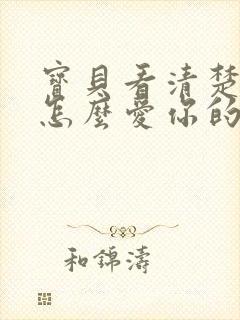 寶貝看清楚
怎麼愛你的
和錦濤